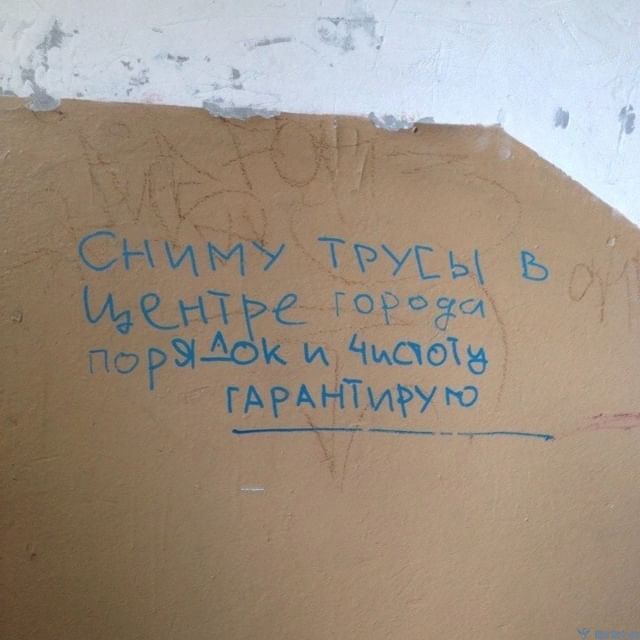 СНИМУ ТРУСЫ В
Центре города
порядок и чистоту
ГАРАНТИРУЮ